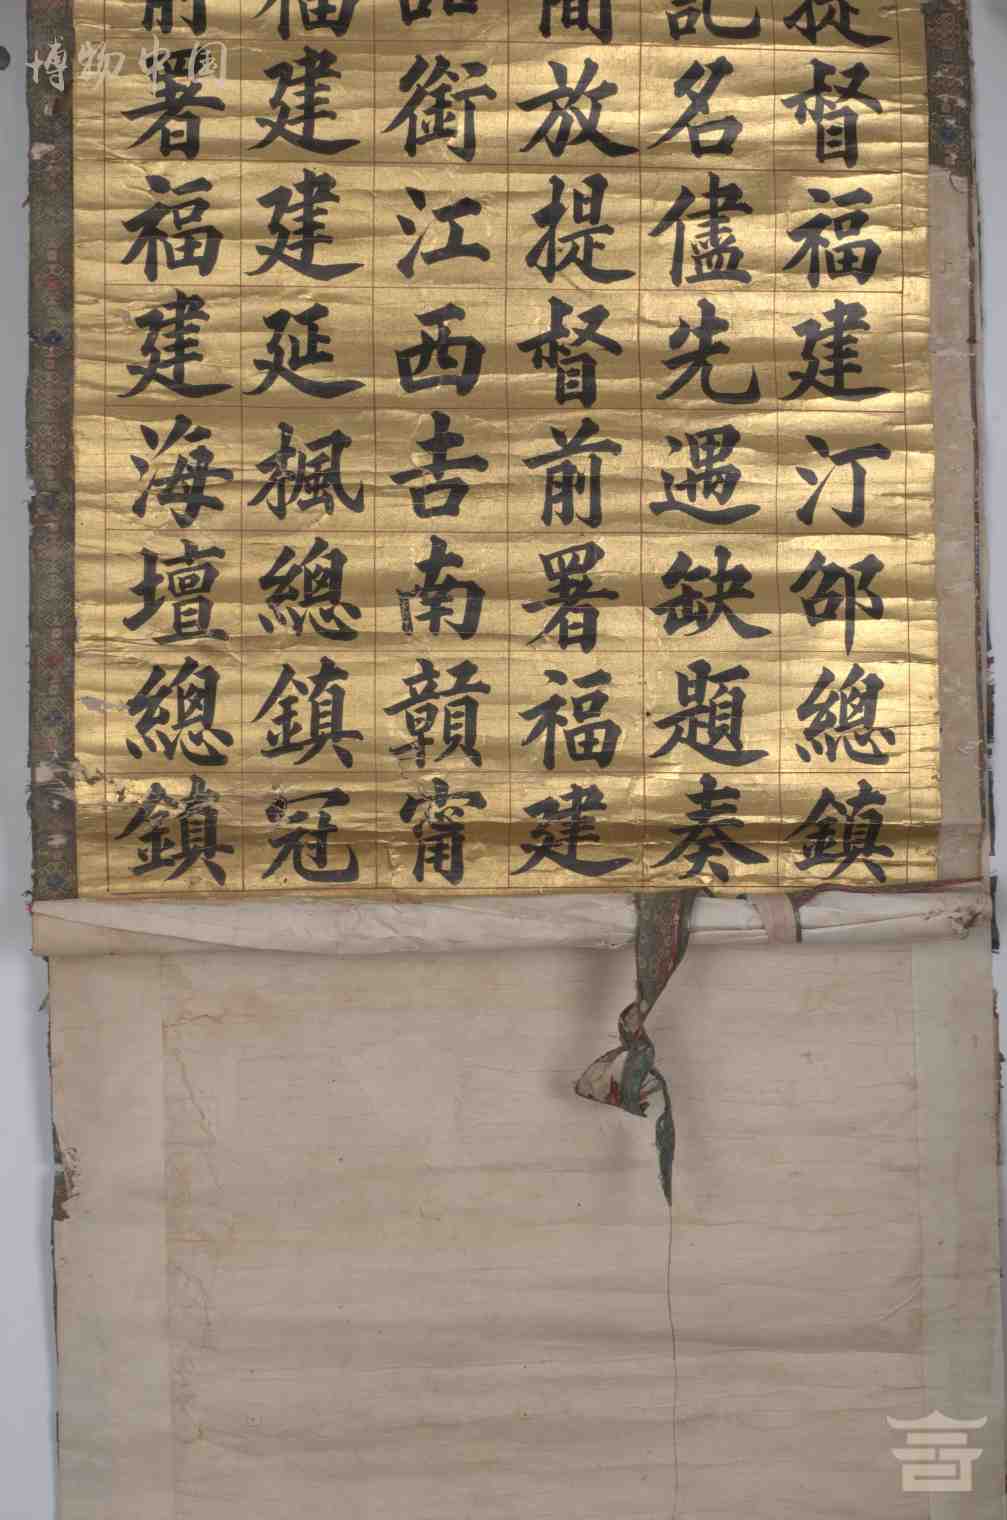 提督福建汀邵總鎮
記名儘先遇缺題奏
簡放提督前署福建
品銜江西吉南贛甯
福建建延楓總鎮冠
前署福建海壇總鎮
博物中国